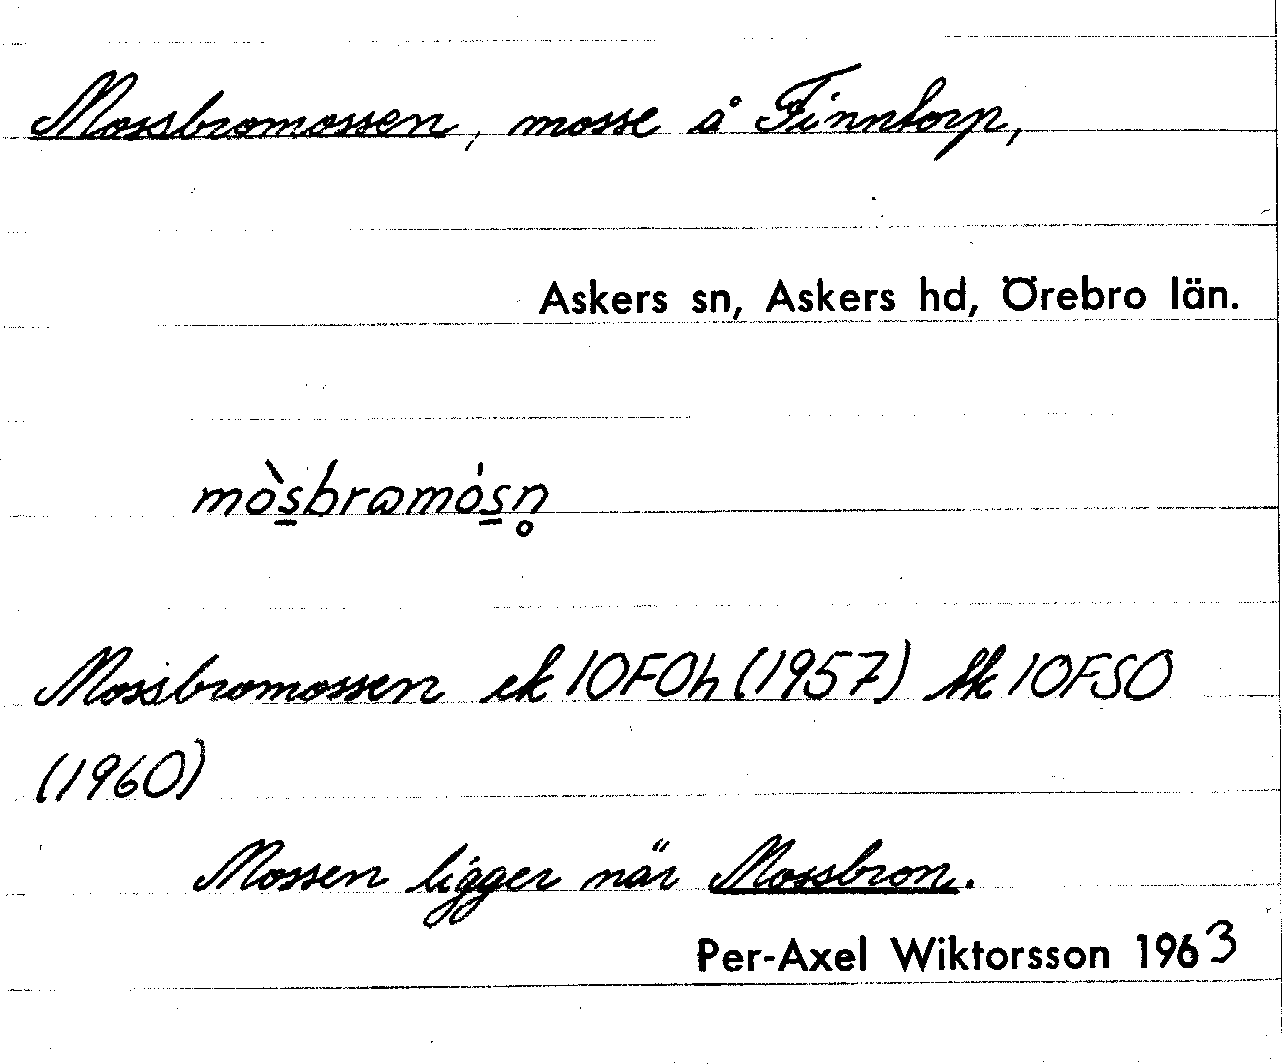 Mossbromossen, mosse å Finntorp,
Askers sn, Askers hd, Örebro län.
mòsbramósn̥
Mossbromossen ek 10F0h (1957) tk 10FSO
(1960)
Mossen ligger när Mossbron.
Per-Axel Wiktorsson 1963